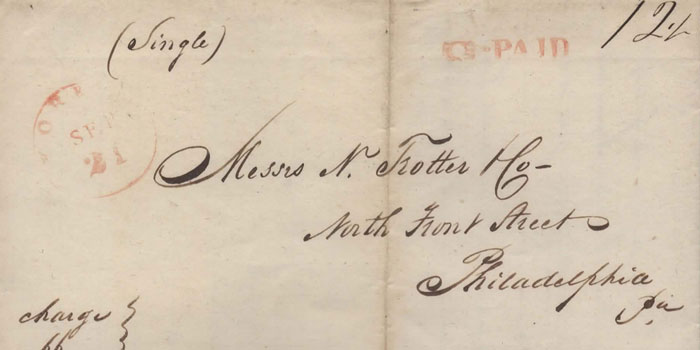 (Single)
PAID
12½
SEP
21
Messrs N. Trotter & Co-
North Front Street
Philadelphia
Pa
charge